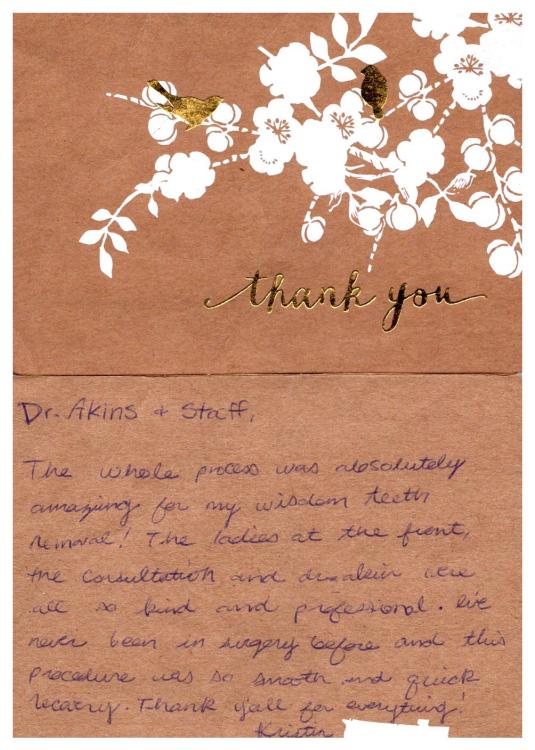 thank you
Dr. Akins + Staff,
The whole process was absolutely
amazing for my wisdom teeth
removal! The ladies at the front,
the consultation and dr. akin were
all so kind and professional. Ive
never been in surgery before and this
procedure was so smooth and quick
recarry. Thank y'all for everything!
Kristin